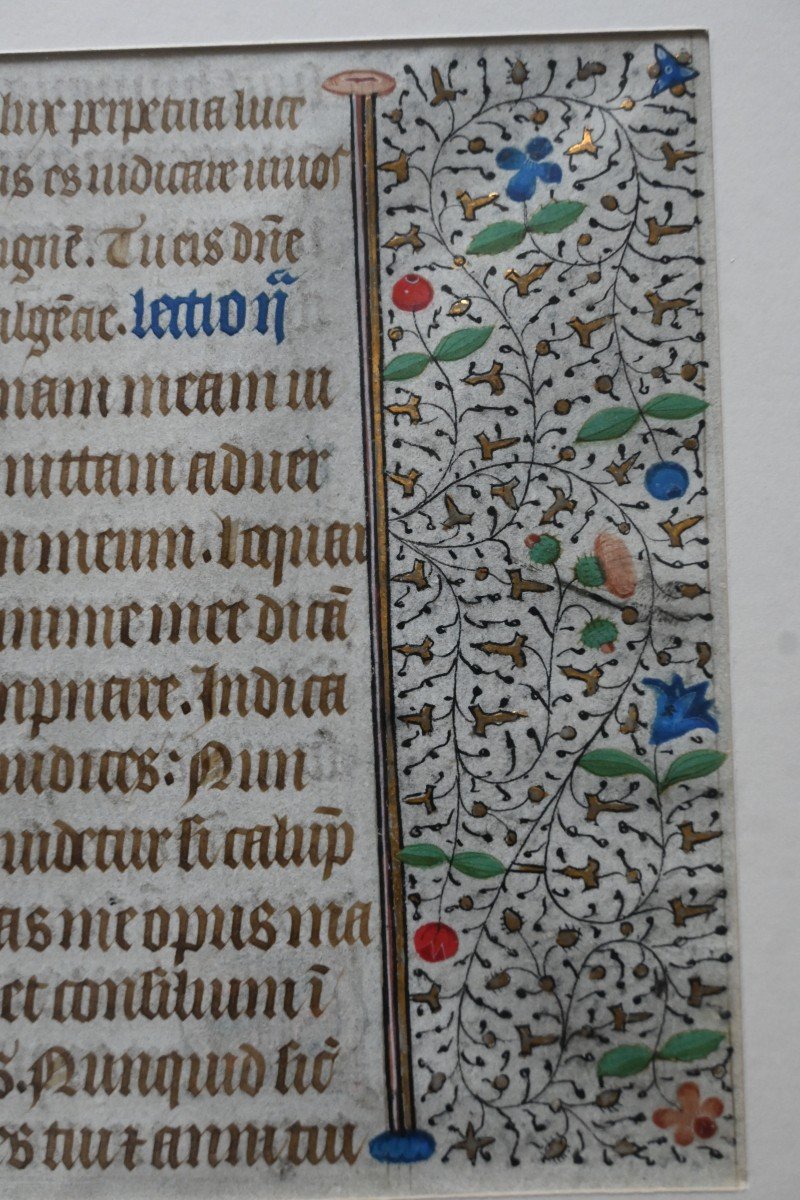 lux perpetua luce
as es iudicare uiuos
agnē. Tu eis dñe
algēcie. lectio ij̄
mam meam in
mittam aduer
m meum. loquar
anime mee dicā
mpnare. Indica
iudices: Nun
uidetur si calūp
as me opus ma
et consilium ī
Nunquid sic̄
es tui et anni tui